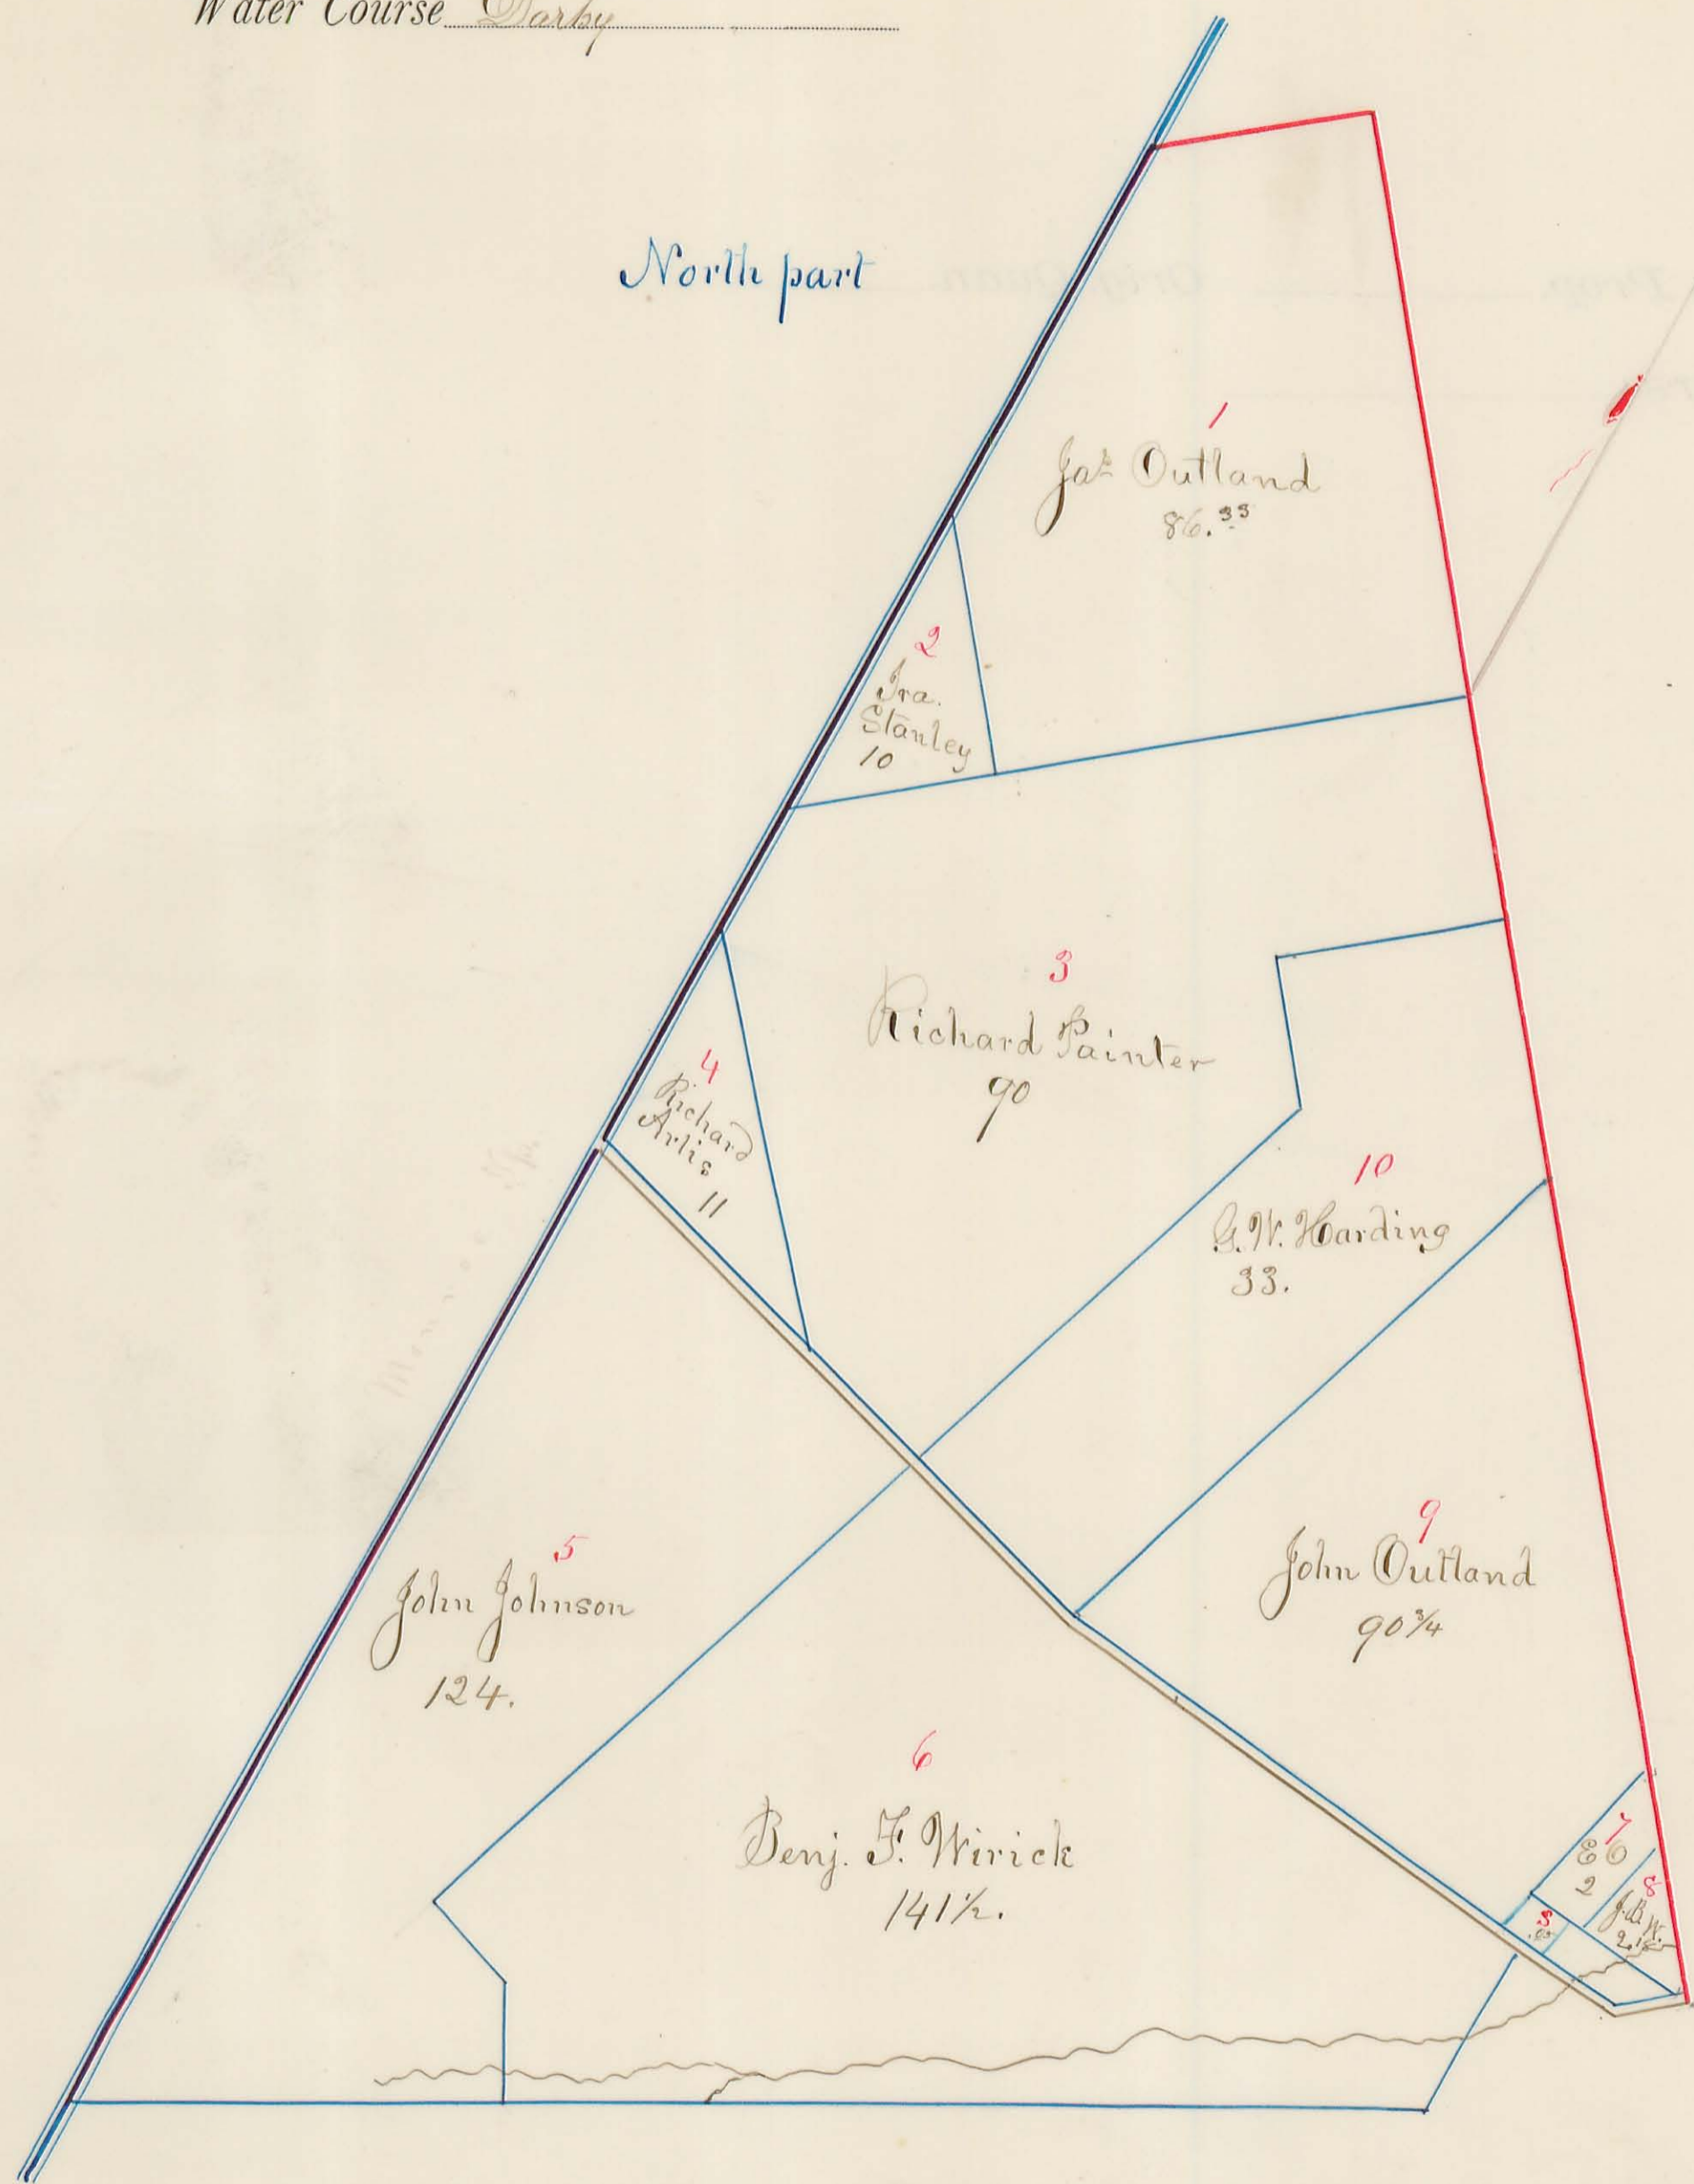 Water Course Darby
North part
1
Jas Outland
86.33
2
Ira.
Stanley
10
3
Richard Painter
90
4
Richard
Artis
11
10
G. W. Harding
33.
5
John Johnson
124.
9
John Outland
90 3/4
6
Benj. F. Wirick
141 1/2.
7
E O
2
8
J. B. W.